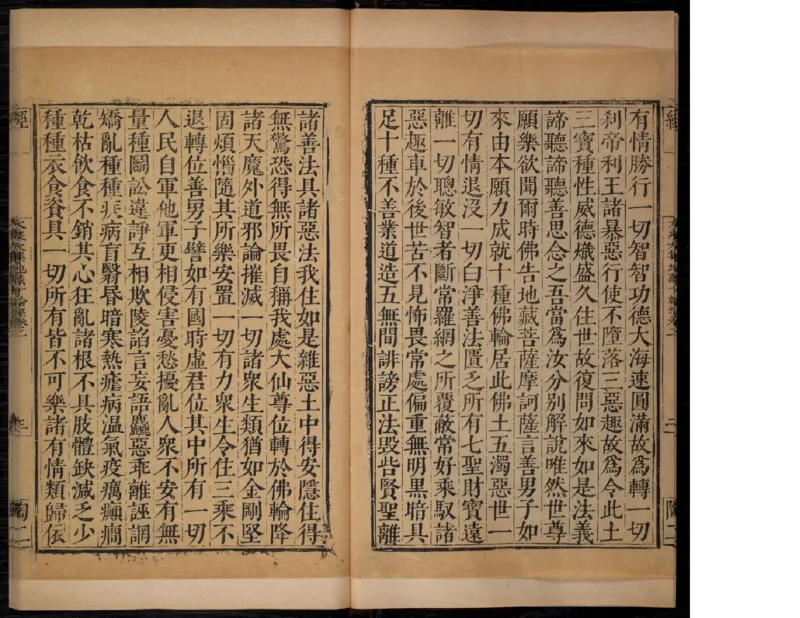 有情勝行一切智智功德大海速圓滿故爲轉一切
刹帝利王諸暴惡行使不墮落三惡趣故爲令此土
三寶種性威德熾盛久住世故復問如來如是法義
諦聽諦聽善思念之吾當爲汝分別解說唯然世尊
願樂欲聞爾時佛告地藏菩薩摩訶薩言善男子如
來由本願力成就十種佛輪居此佛土五濁惡世一
切有情退沒一切白淨善法匱乏所有七聖財寶遠
離一切聰敏智者斷常羅網之所覆蔽常好乘馭諸
惡趣車於後世苦不見怖畏常處偏重無明黑暗具
足十種不善業道造五無間誹謗正法毀呰賢聖離
諸善法具諸惡法我住如是雜惡土中得安隱住得
無驚恐得無所畏自稱我處大仙尊位轉於佛輪降
諸天魔外道邪論摧滅一切諸衆生類猶如金剛堅
固煩惱隨其所樂安置一切有力衆生令住三乘不
退轉位善男子譬如有國時虛君位其中所有一切
人民自軍他軍更相侵害憂愁擾亂人衆不安有無
量種鬭訟違諍互相欺陵諂言妄語麤惡乖離誑誷
矯亂種種疾病盲瞖昏暗寒熱瘧病溫氣疫癘癲癎
乾枯飲食不銷其心狂亂諸根不具肢體缺減乏少
種種衣食資具一切所有皆不可樂諸有情類歸依
經
陶二